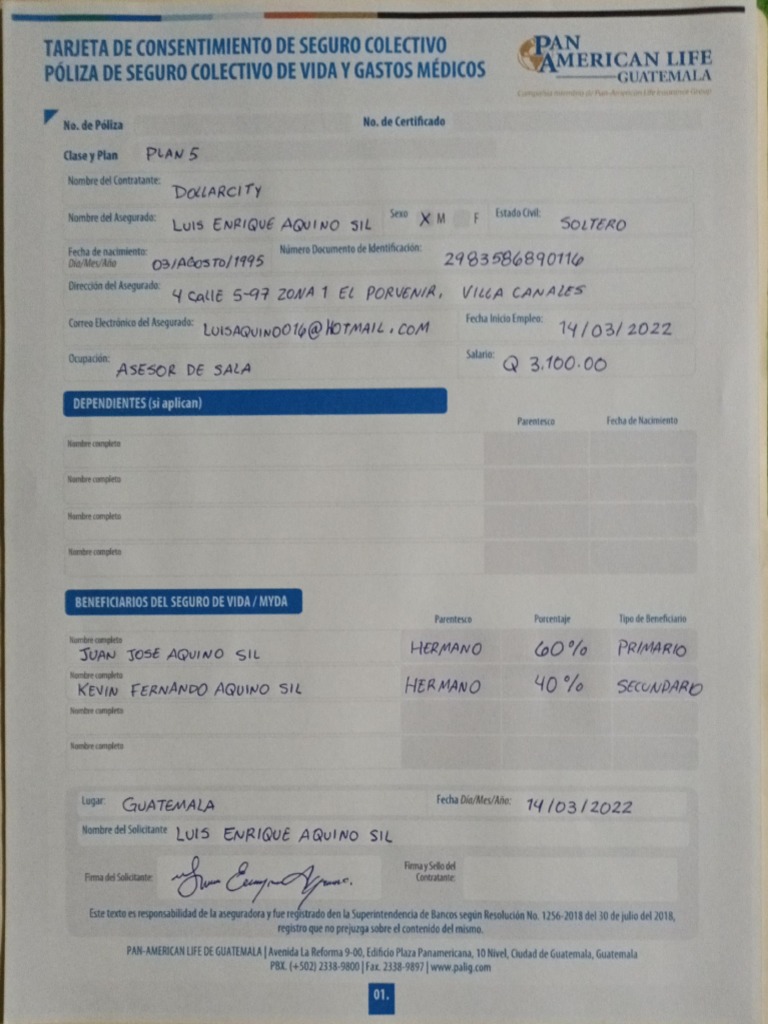 TARJETA DE CONSENTIMIENTO DE SEGURO COLECTIVO
PÓLIZA DE SEGURO COLECTIVO DE VIDA Y GASTOS MÉDICOS
PAN
AMERICAN LIFE
GUATEMALA
Compañía miembro de Pan-American Life Insurance Group
No. de Póliza No. de Certificado
Clase y Plan PLAN 5
Nombre del Contratante: DOLLARCITY
Nombre del Asegurado: LUIS ENRIQUE AQUINO SIL Sexo X M F Estado Civil: SOLTERO
Fecha de nacimiento: Día/Mes/Año 03/AGOSTO/1995 Número Documento de Identificación: 2983586890116
Dirección del Asegurado: 4 CALLE 5-97 ZONA 1 EL PORVENIR, VILLA CANALES
Correo Electrónico del Asegurado: LUISAQUINO016@HOTMAIL.COM Fecha Inicio Empleo: 14/03/2022
Ocupación: ASESOR DE SALA Salario: Q 3.100.00
DEPENDIENTES (si aplican)
Parentesco Fecha de Nacimiento
Nombre completo
Nombre completo
Nombre completo
Nombre completo
BENEFICIARIOS DEL SEGURO DE VIDA / MYDA
Parentesco Porcentaje Tipo de Beneficiario
Nombre completo JUAN JOSE AQUINO SIL HERMANO 60% PRIMARIO
Nombre completo KEVIN FERNANDO AQUINO SIL HERMANO 40% SECUNDARIO
Nombre completo
Nombre completo
Lugar: GUATEMALA Fecha Día/Mes/Año: 14/03/2022
Nombre del Solicitante LUIS ENRIQUE AQUINO SIL
Firma del Solicitante: Firma y Sello del Contratante:
Este texto es responsabilidad de la aseguradora y fue registrado den la Superintendencia de Bancos según Resolución No. 1256-2018 del 30 de julio del 2018,
registro que no prejuzga sobre el contenido del mismo.
PAN-AMERICAN LIFE DE GUATEMALA | Avenida La Reforma 9-00, Edificio Plaza Panamericana, 10 Nivel, Ciudad de Guatemala, Guatemala
PBX. (+502) 2338-9800 | Fax. 2338-9897 | www.palig.com
01.